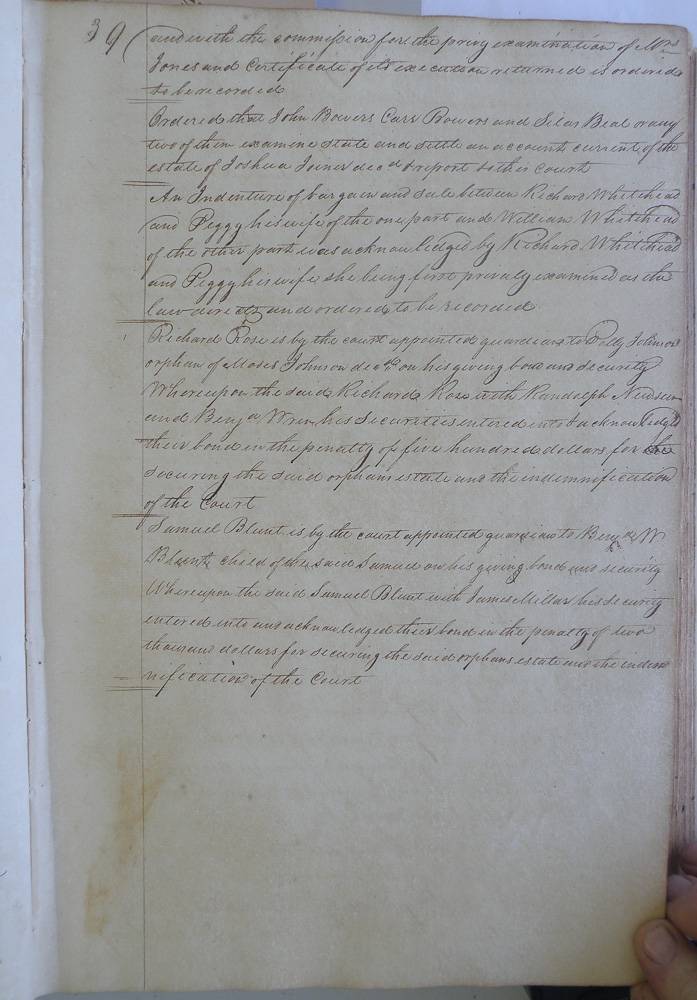 39
and with the commission for the privy examination of Mrs
Jones and Certificate of its execution returned is ordered
to be recorded
Ordered that John Bowers Carr Bowers and Silas Beal or any
two of them examine state and settle an account current of the
estate of Joshua Joiner decd & report to this Court
An Indenture of bargain and sale between Richard Whitehead
and Peggy his wife of the one part and William Whitehead
of the other part was acknowledged by Richard Whitehead
and Peggy his wife she being first privaly examined as the
law directs and ordered to be recorded
Richard Rose is by the court appointed guardian to Polly Johnson
orphan of Moses Johnson decd on his giving bond and security
Whereupon the said Richard Rose with Randolph Newsum
and Benja Wren his Securities entered into & acknowledged
their bond in the penalty of five hundred dollars for the
securing the said orphans estate and the indemnification
of the Court
Samuel Blunt is by the court appointed guardian to Benja W
Blunt child of the said Samuel on his giving bond and security
Whereupon the said Samuel Blunt with James Millar his security
entered into and acknowledged their bond in the penalty of two
thousand dollars for securing the said orphans estate and the indem
nification of the Court